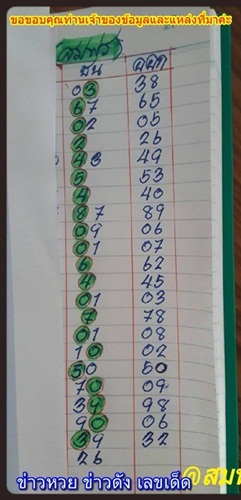 ขอขอบคุณท่านเจ้าของข้อมูลและแหล่งที่มาค่ะ
ชน ผลก
03 38
67 65
02 05
2 26
43 49
5 53
4 40
87 89
09 06
01 07
6 62
4 45
01 03
7 78
01 08
10 02
50 50
70 09
39 98
90 06
39 32
26
ข่าวหวย ข่าวดัง เลขเด็ด @สมห